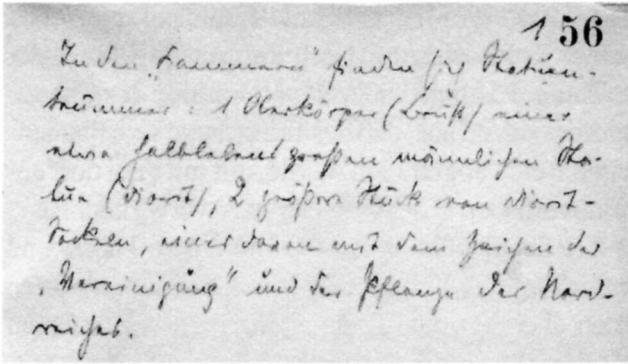 1 56
In den „Kammern" finden sich Statuen-
trümmer: 1 Oberkörper (Brust) einer
etwa halblebensgroßen männlichen Sta-
tue (Diorit), 2 größere Stück von Diorit-
sockeln, einer davon mit dem Zeichen der
„Vereinigung" und der Pflanze des Nord-
reiches.